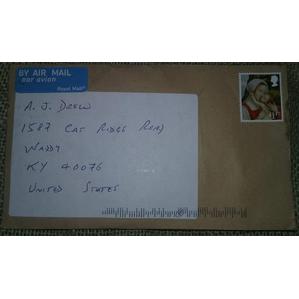 BY AIR MAIL
par avion
Royal Mail
A. J. DREW
1587 CAT RIDGE ROAD
WADDY
KY 40076
UNITED STATES